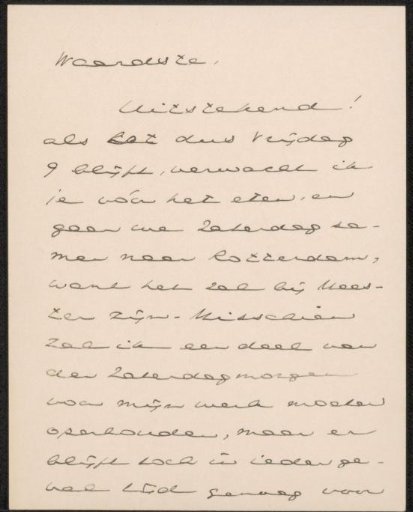 Waardste,
Uitstekend!
als het dus Vrijdag
9 blijft, verwacht ik
je vóór het eten, en
gaan we Zaterdag sa-
men naar Rotterdam,
want het zal bij Mees-
ter zijn. Misschien
zal ik een deel van
den Zaterdagmorgen
voor mijn werk moeten
openhouden, maar er
blijft toch in ieder ge-
val tijd genoeg voor